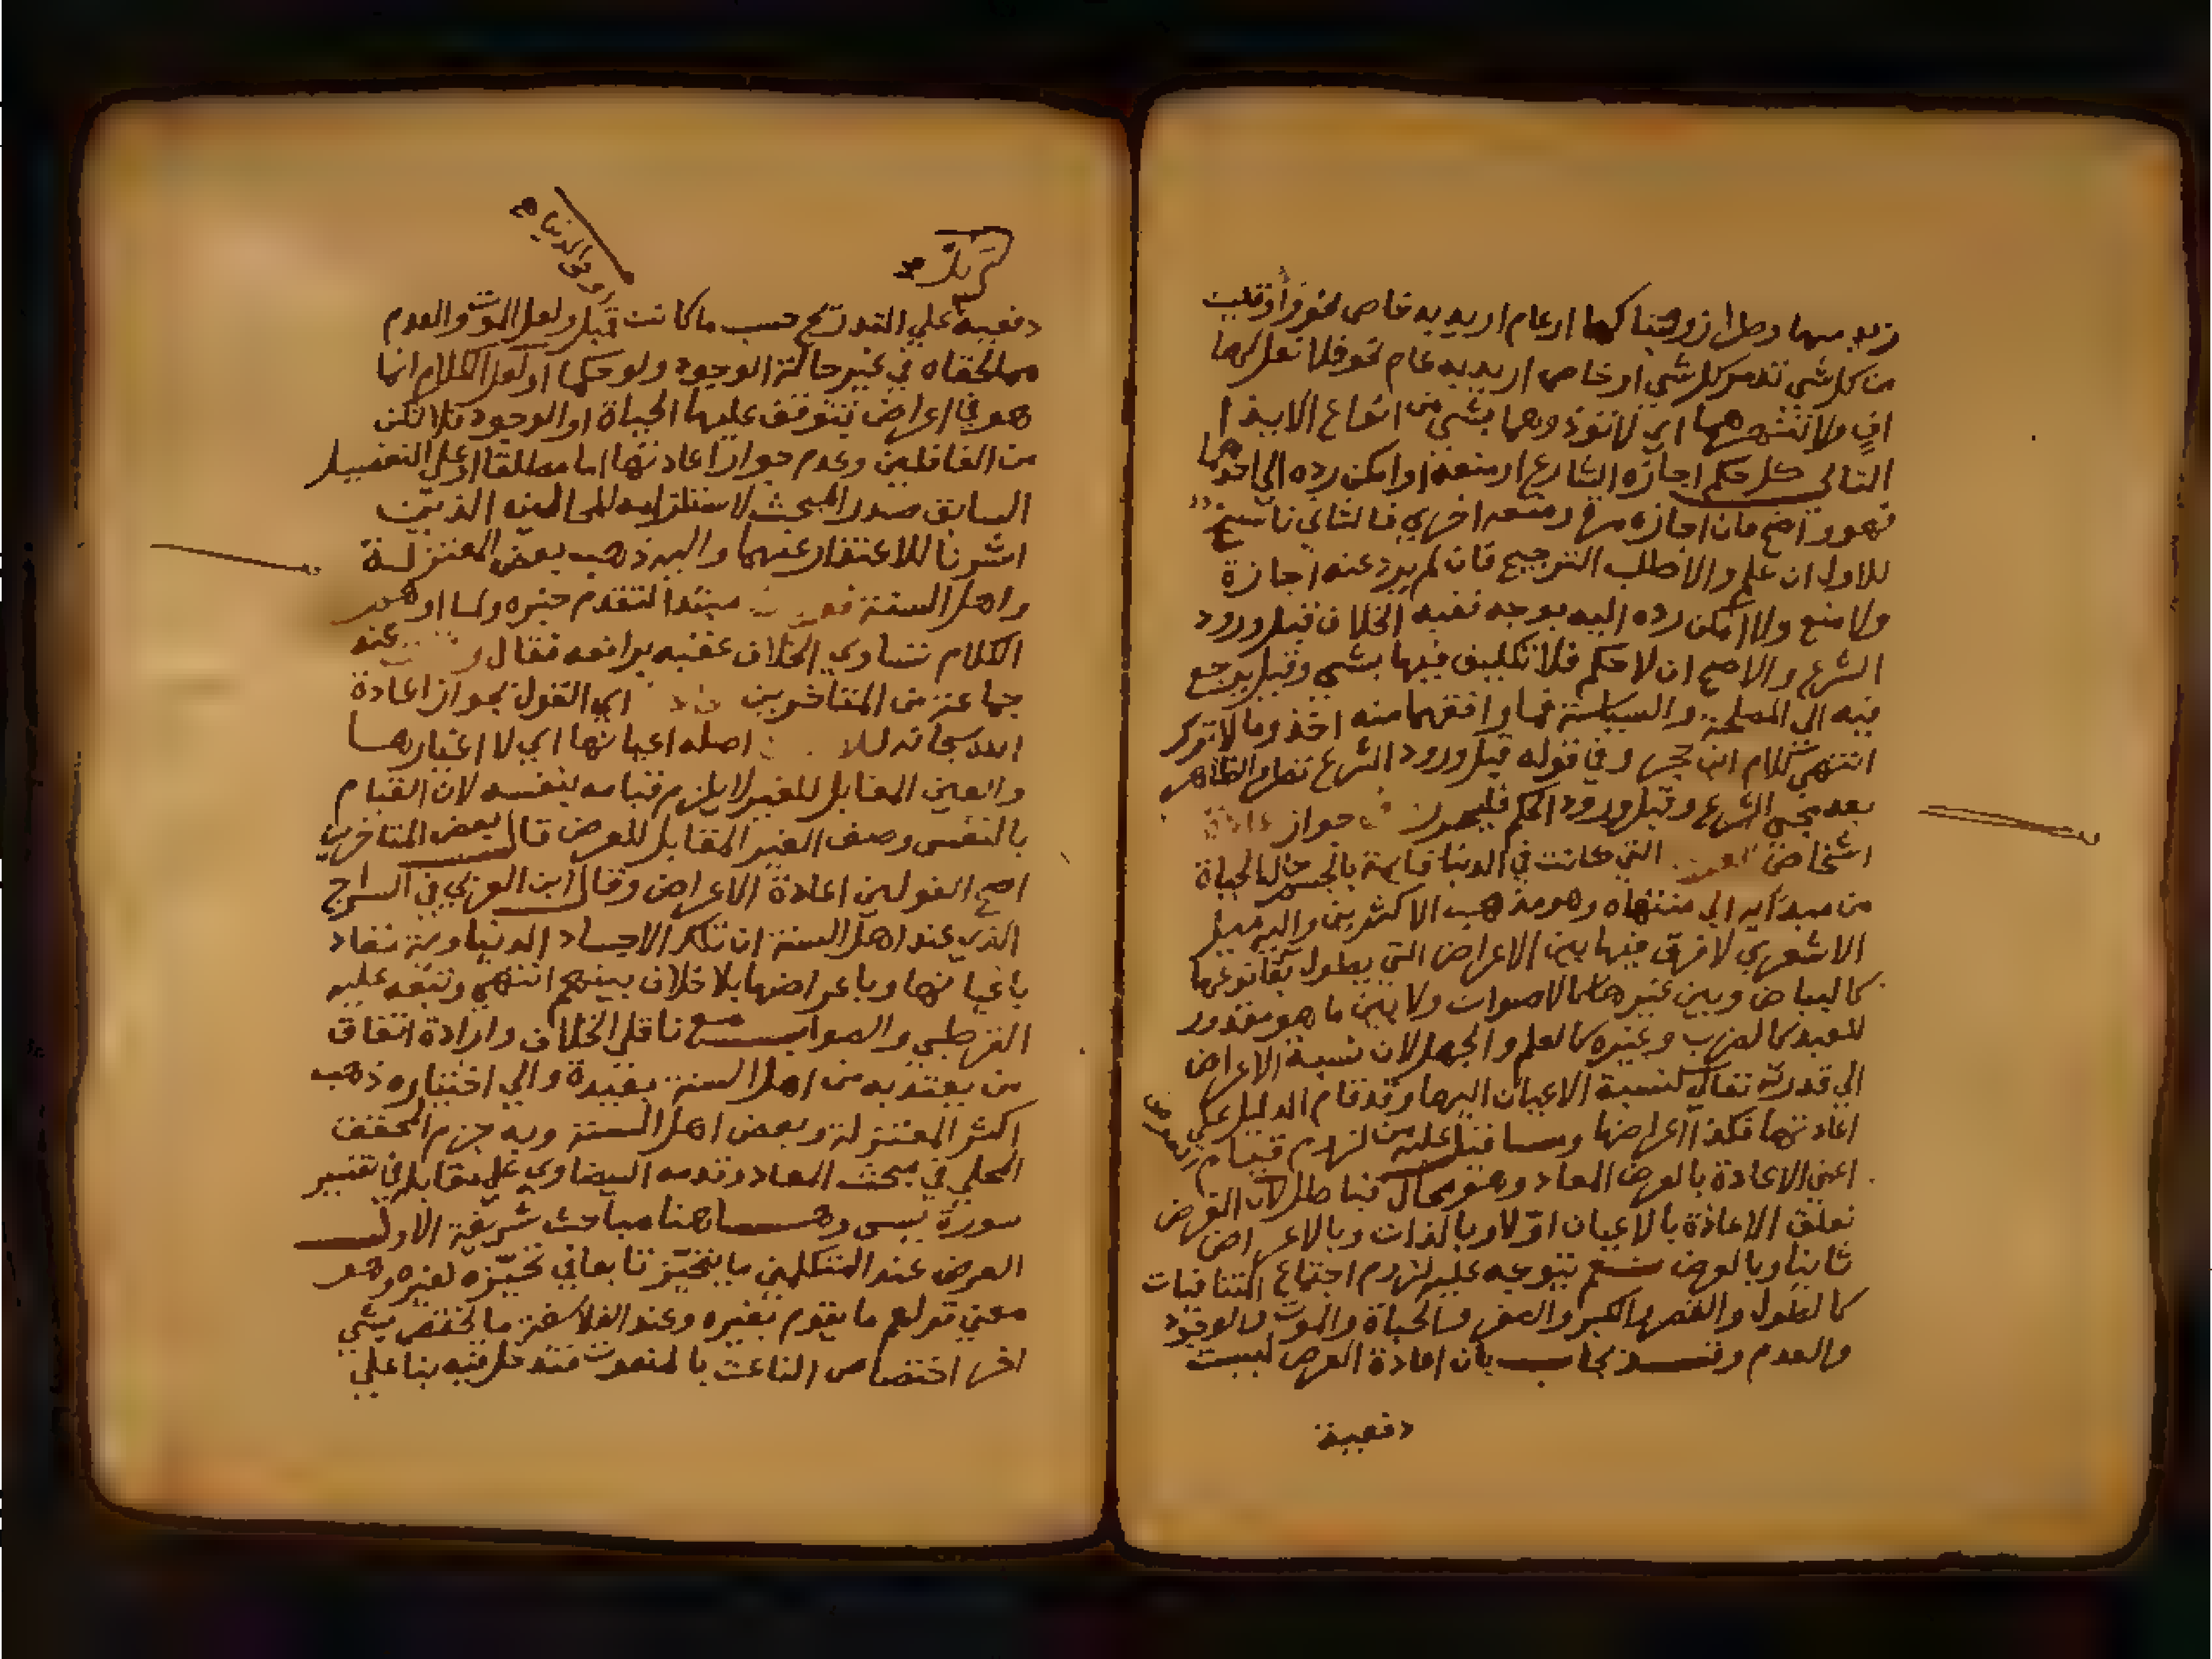 زيد منهما وطرا زوجناكها او عام اريد به خاص نحو وأوتيت
من كل شي تدمر كل شي او خاص اريد به عام نحو فلا تقل لهما
اف ولا تنهرهما اي لا تؤذوهما بشي من انواع الايذا
الثاني كل حكم اجازه الشارع او منعه او امكن رده الي احدهما
فهو واضح فان اجازه مرة ومنعه اخري فالثاني ناسخ
للاول ان علم والا طلب الترجيح فان لم يرد عنه اجازة
ولا منع ولا امكن رده اليه بوجه ففيه الخلاف قبل ورود
الشرع والاصح ان لا حكم فلا تكليف فيها بشي وقيل يرجع
فيه الي المصلحة والسياسة فما وافقهما منه اخذ وما لا ترك
انتهي كلام ابن حجر وفي قوله قبل ورود الشرع نظر والظاهر
بعد مجي الشرع وقبل ورود الحكم جواز
اشخاص التي كانت في الدنيا قايمة بالجسم حال الحياة
من مبدايه الي منتهاه وهو مذهب الاكثرين واليه ميل
الاشعري لا فرق فيها بين الاعراض التي يطول بقا نوعها
كالبياض وبين غيرها كالاصوات ولا بين ما هو مقدور
للعبد كالضرب وغيره كالعلم والجهل لان نسبة الاعراض
الي قدرته تعالي كنسبة الاعيان اليها وقد قام الدليل علي
اعادتها فكذا اعراضها وما قيل عليه من لزوم قيام
اعني الاعادة بالعرض المعاد وهو محال فباطل لان الغرض
تعلق الاعادة بالاعيان اولا وبالذات وبالاعراض
ثانيا وبالعرض نعم يتوجه عليه لزوم اجتماع المتنافيات
كالطول والقصر والكبر والصغر والحياة والموت والوجود
والعدم وقد يجاب بان اعادة العرض ليست
دفعية
دفعية علي التدريج حسب ما كانت قبل ولعل الموت والعدم
مما لحقاه في غير حالة الوجود ولو حكما او لعل الكلام انما
هو في اعراض يتوقف عليها الحياة او الوجود فلا تكن
من الغافلين وعدم جواز اعادتها اما مطلقا او علي التفصيل
السابق صدر المبحث لاستلزامه للمحالين الذين
اشرنا للاعتذار عنهما واليه ذهب بعض المعتزلة
واهل السنة مبتدا لتقدم خبره ولما اوهم
الكلام تساوي الخلاف عقبه برافعه فقال عند
جماعة من المتاخرين اي القول بجواز اعادة
الله سبحانه اصله اعيانها اي لا اغيارها
والعين المقابل للغير لا يلزم قيامه بنفسه لان القيام
بالنفس وصف الغير المقابل للعرض قال بعض المتاخرين
اصح القولين اعادة الاعراض وقال ابن العربي في السراج
الذي عند اهل السنة ان تلك الاجساد الدنياوية تعاد
باعيانها وباعراضها بلا خلاف بينهم انتهي وتبعه عليه
القرطبي والصواب مع ناقل الخلاف وارادة اتفاق
من يعتد به من اهل السنة بعيدة والي اختياره ذهب
اكثر المعتزلة وبعض اهل السنة وبه جزم المحقق
المحلي في مبحث المعاد وقدمه البيضاوي علي مقابله في تفسير
سورة يس وههنا مباحث شريفة الاول
العرض عند المتكلمين ما يتحيز تابعا في تحيزه لغيره وهو
معني قولهم ما يقوم بغيره وعند الفلاسفة ما يختص بشي
اخر اختصاص الناعت بالمنعوت فتدخل فيه بنا علي